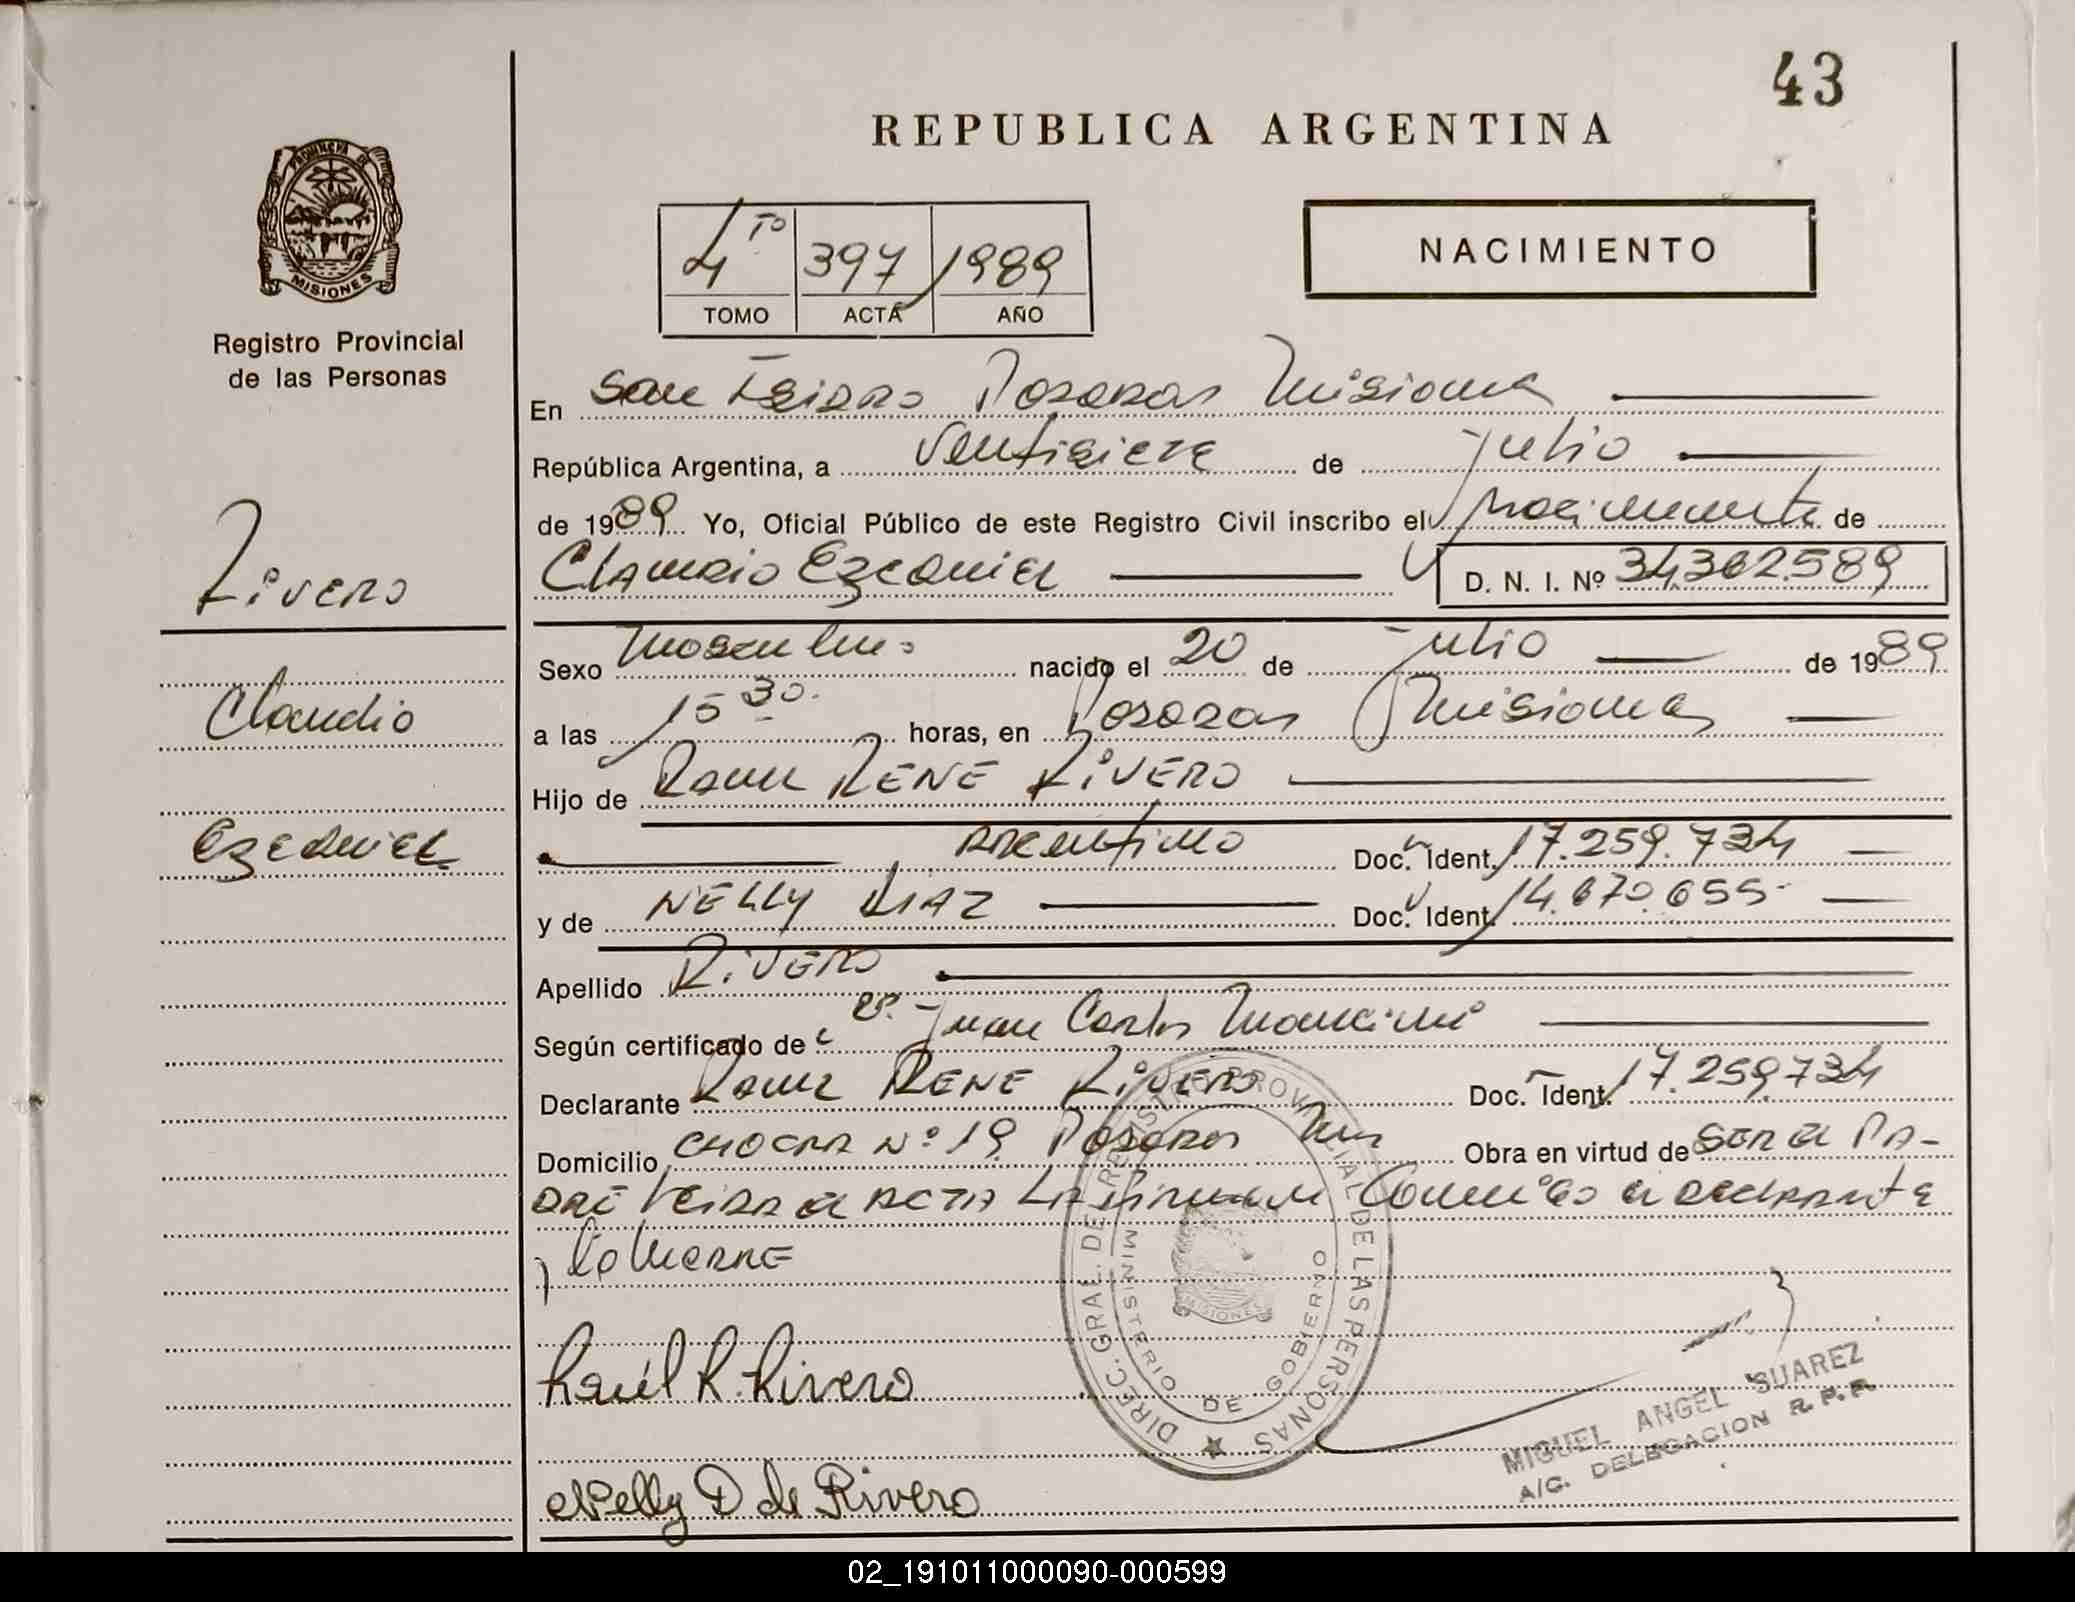 43
REPUBLICA ARGENTINA
PROVINCIA DE
MISIONES
Registro Provincial
de las Personas
4 TO 397 1989
TOMO ACTA AÑO
NACIMIENTO
En San Isidro Posadas Misiones
República Argentina, a Ventisiete de julio
de 1989 Yo, Oficial Público de este Registro Civil inscribo el nacimiento de
Claudio Ezequiel D. N. I. Nº 34.362.589
Rivero
Claudio
Ezequiel
Sexo Masculino nacido el 20 de julio de 1989
a las 15 30 horas, en Posadas Misiones
Hijo de Raul RENE RIVERO
Argentino Doc. Ident. 17.259.734
y de NELLY DIAZ Doc. Ident. 14.670.655
Apellido RIVERO
Según certificado de Juan Carlos
Declarante Raul RENE RIVERO Doc. Ident. 17.259.734
Domicilio CHACRA Nº 19 Posadas Mns Obra en virtud de SER el PA-
DRE Leida el ACTA LA firman Conmigo el declarante
y la MADRE
Raúl R. Rivero
Nelly D de Rivero
DIREC. GRAL. DE REGISTRO PROVINCIAL DE LAS PERSONAS
MINISTERIO DE GOBIERNO
MISIONES
MIGUEL ANGEL SUAREZ
A/C. DELEGACION R. P. P.
02_191011000090-000599